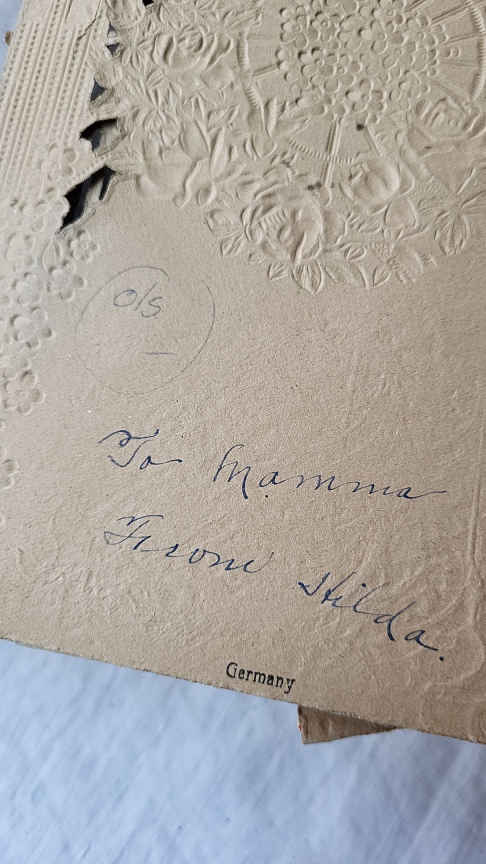 o/s
To Mamma
From Hilda.
Germany